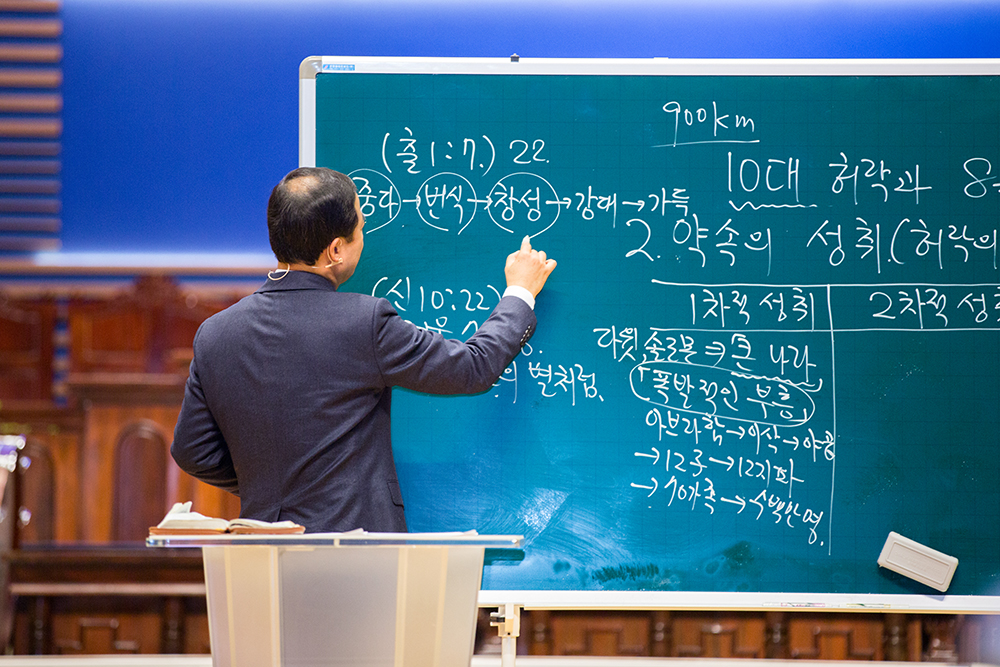 900km
(출 1:7.) 22.
10대 허락과 8
중다→번식→창성→강대→가득
2. 약속의 성취.(허락의
(신 10:22)
1차적 성취 2차적 성취
다윗, 솔로몬 ⇒ 큰 나라
의 별처럼.
「폭발적인 부흥」
아브라함→이삭→야곱
→12국→12지파
→70가족→수백만 명.